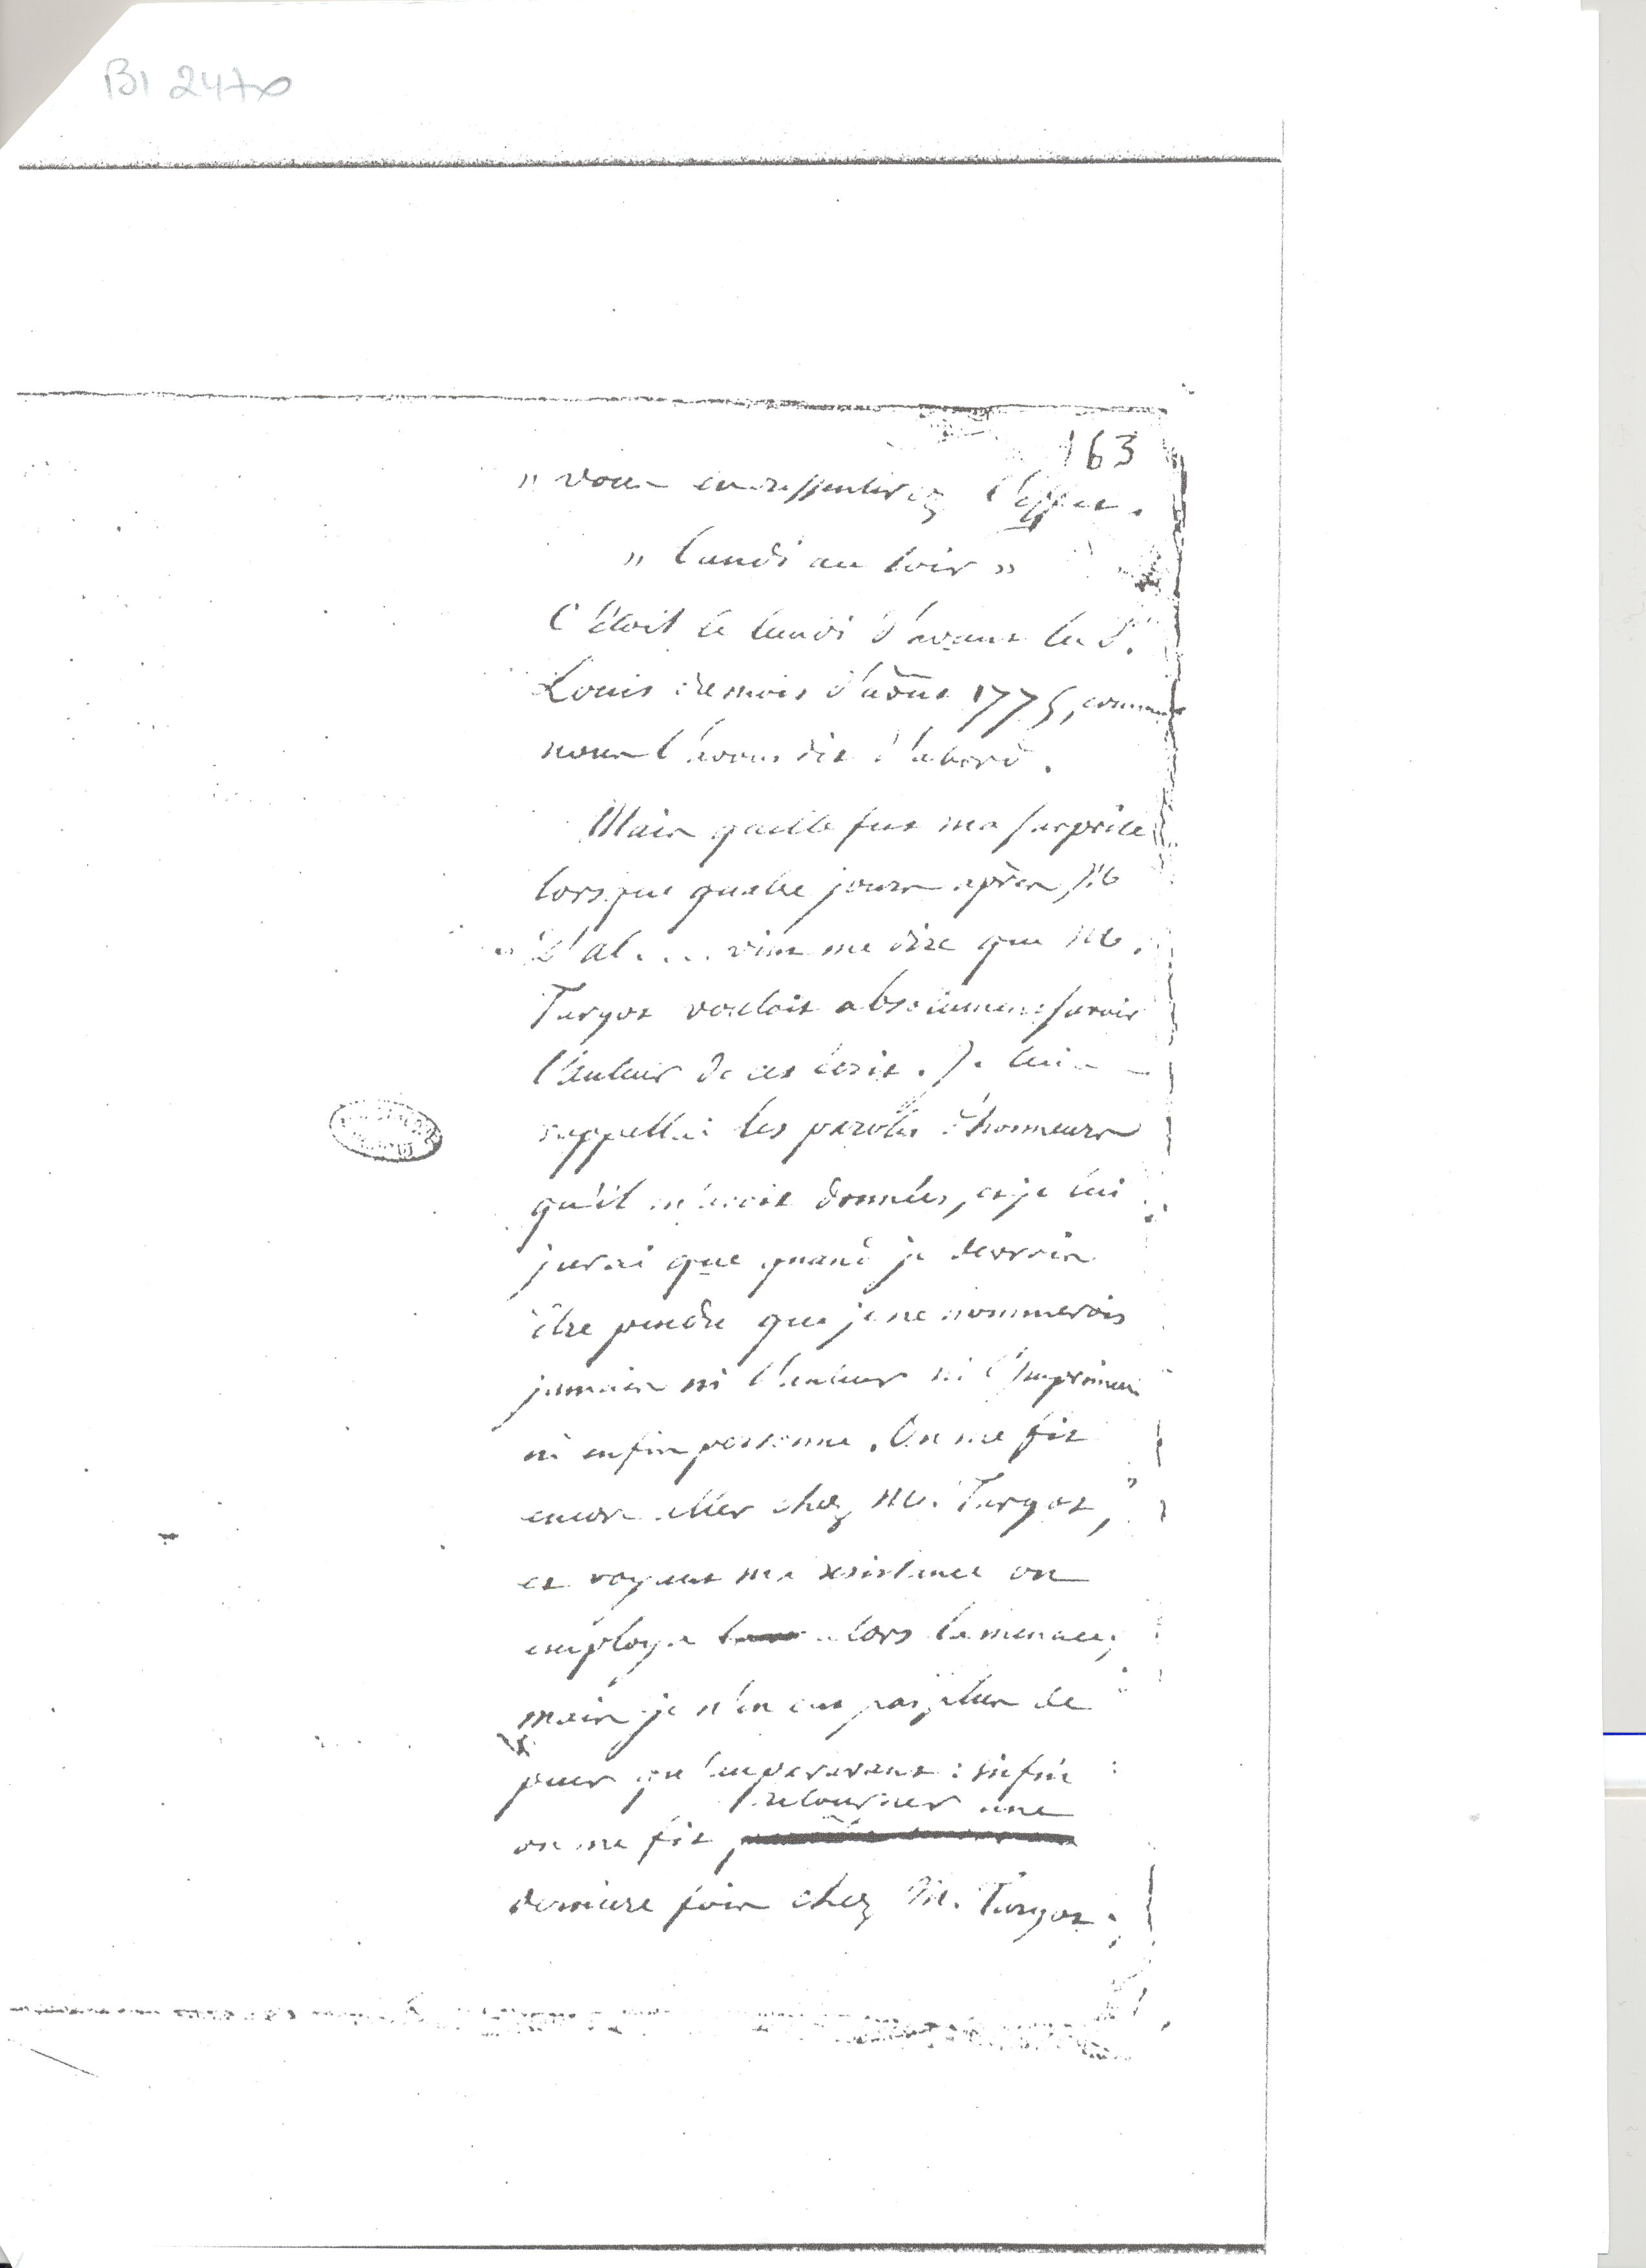 BI 2470
163
" vous en ressentirez l'effet.
" lundi au soir "
C'étoit le lundi d'avant la S.
Louis du mois d'août 1775, comme
nous l'avons dit d'abord.
Mais quelle fut ma surprise
lorsque quatre jours après, M
d'Al.... vint me dire que M.
Turgot vouloit absolument savoir
l'auteur de cet écrit. Je lui
rappellai les paroles d'honneurs
qu'il m'avoit données, et je lui
jurai que quand je devrois
être pendu que je ne nommerois
jamais ni l'auteur ni l'Imprimeur
ni enfin personne. On me fit
encore aller chez M. Turgot,
et voyant ma résistance on
employa alors la menace;
mais je n'en eus pas plus de
peur qu'auparavant : enfin
retourner une
on me fit
derniere fois chez M. Turgot;